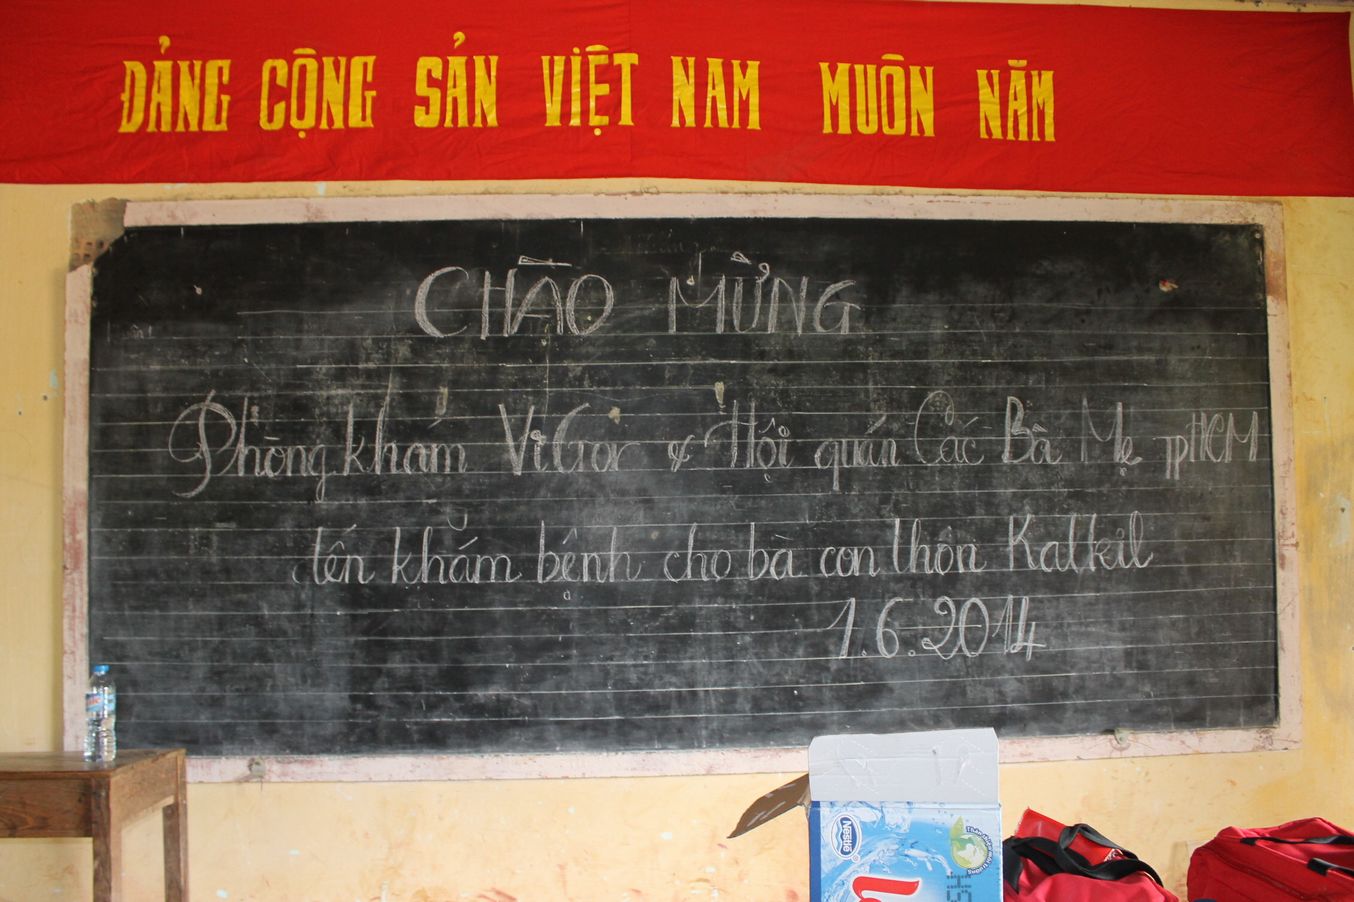 ĐẢNG CỘNG SẢN VIỆT NAM MUÔN NĂM
CHÀO MỪNG
Phòng khám ViGor & Hội quán Các Bà Mẹ tpHCM
lên khám bệnh cho bà con thôn Katkil
1.6.2014
Nestlé